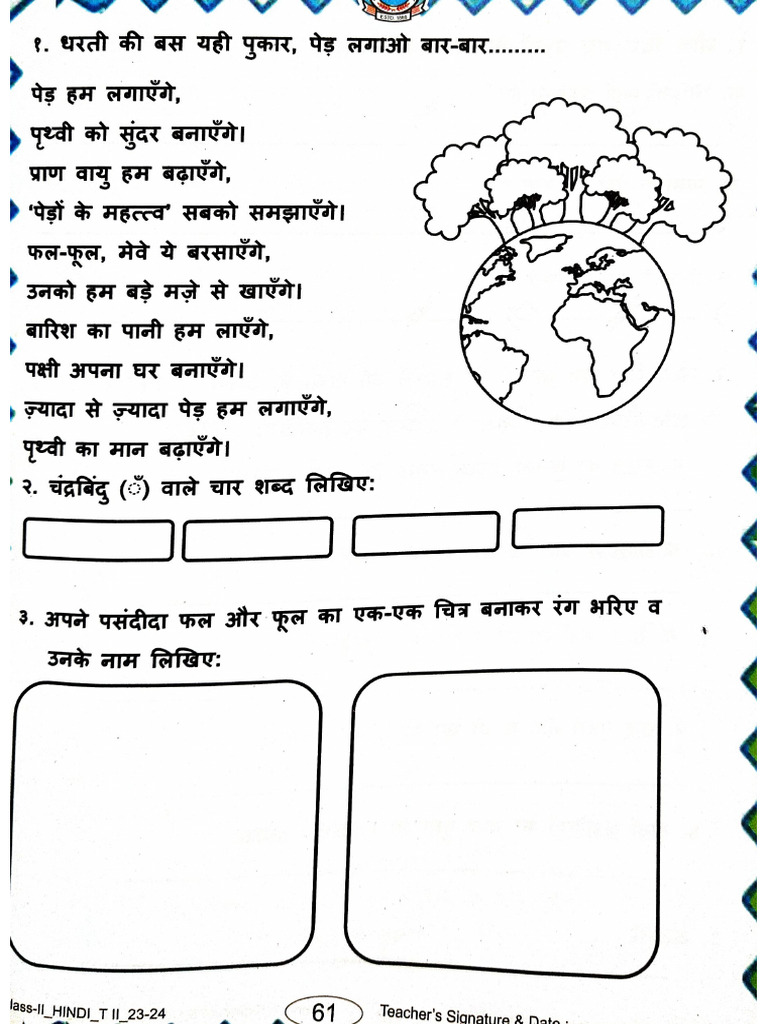 ESTD 1966
१. धरती की बस यही पुकार, पेड़ लगाओ बार-बार.........
पेड़ हम लगाएँगे,
पृथ्वी को सुंदर बनाएँगे।
प्राण वायु हम बढ़ाएँगे,
‘पेड़ों के महत्त्व’ सबको समझाएँगे।
फल-फूल, मेवे ये बरसाएँगे,
उनको हम बड़े मज़े से खाएँगे।
बारिश का पानी हम लाएँगे,
पक्षी अपना घर बनाएँगे।
ज़्यादा से ज़्यादा पेड़ हम लगाएँगे,
पृथ्वी का मान बढ़ाएँगे।
२. चंद्रबिंदु (ँ) वाले चार शब्द लिखिए:
३. अपने पसंदीदा फल और फूल का एक-एक चित्र बनाकर रंग भरिए व
उनके नाम लिखिए:
lass-II_HINDI_T II_23-24
61
Teacher's Signature & Date :